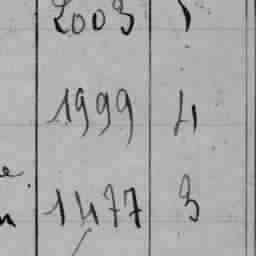 2003
1999 4
1477 3